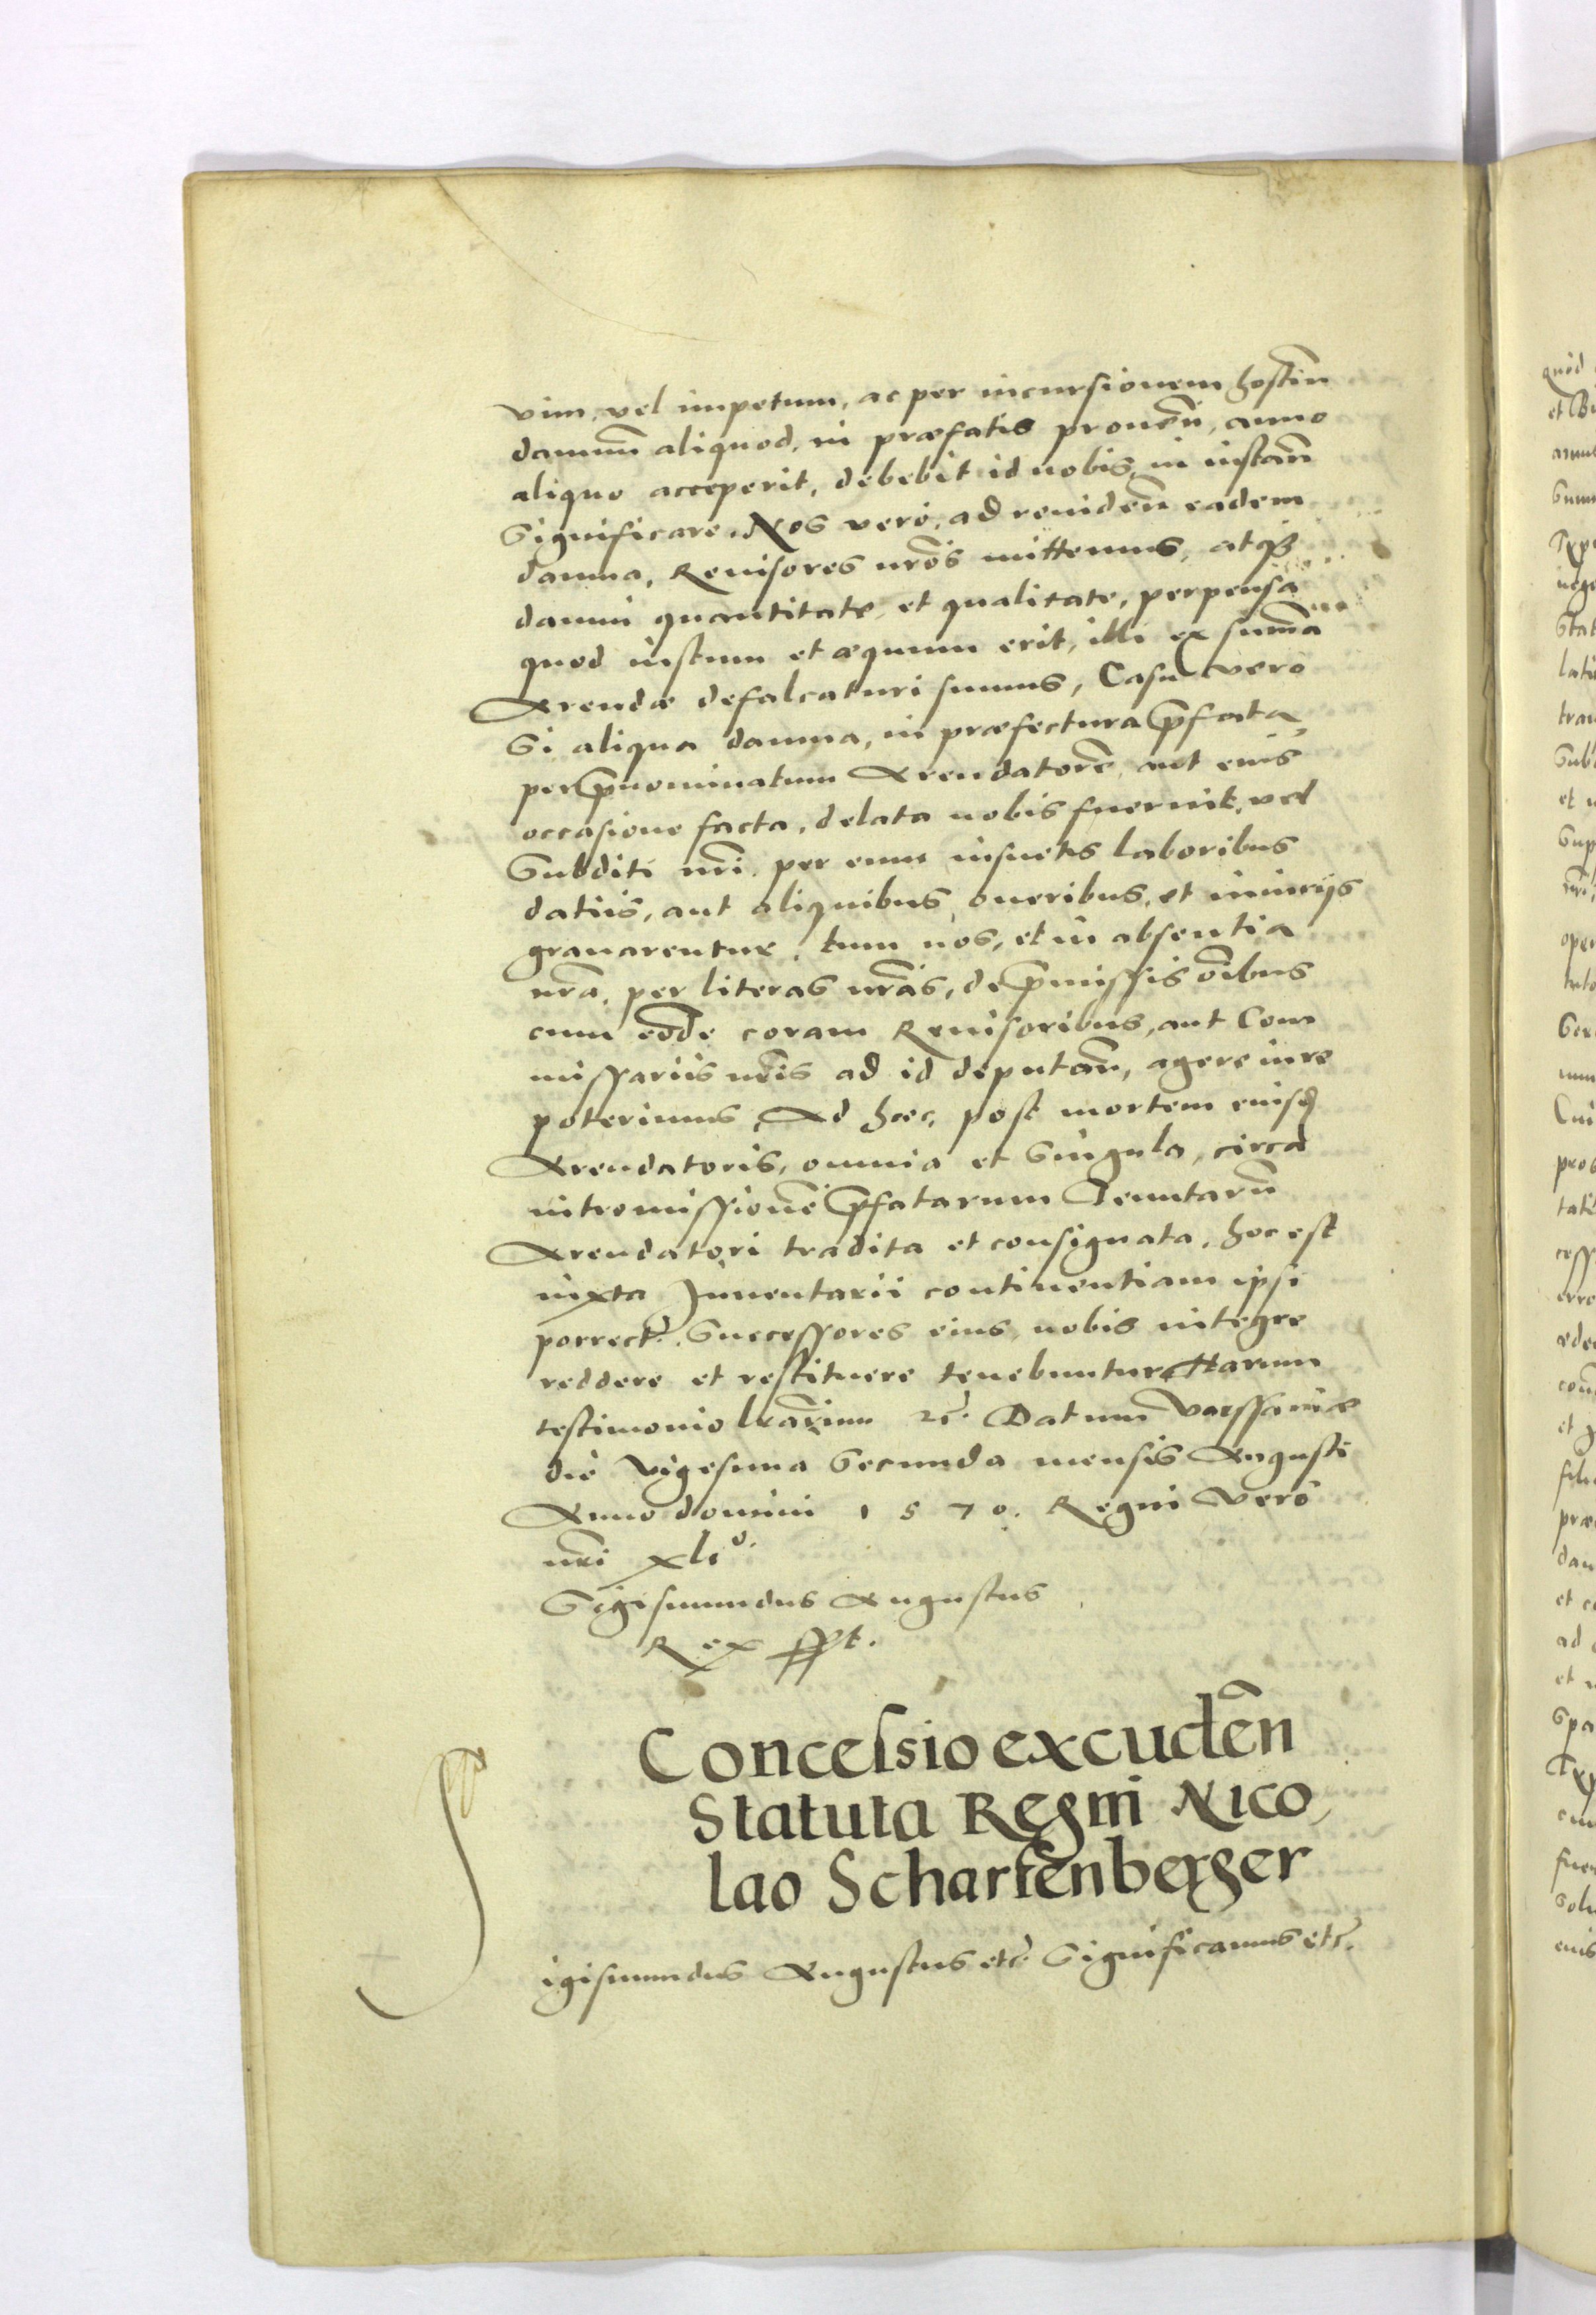 vim, vel impetum, ac per incursionem hostin̄
damnū aliquod, in præfatis prouen̄, anno
aliquo acceperit, debebit id nobis in instan̄
Significare. Nos vero, ad reuidēn eadem
damna, Reuisores nrōs mittemus, atqȝ
damni quantitate, et qualitate, perpensa
quod iustum et æquum erit, illi ex sum̄a
Arendæ defalcaturi sumus, Casu vero
Si aliqua damna, in præfectura p̄fata,
per p̄nominatum Arendatorē, aut eius
occasione facta, delata nobis fuerint, vel
Subditi nrī, per eum insuetis laboribus
datiis, aut aliquibus oneribus, et iniurijs
grauarentur, tum nos, et in absentia
nrā, per literas nrās, de p̄missis oībus
cum eodē coram Reuisoribus, aut Com
missariis nrīs ad id deputan̄, agere iure
poterimus, Ad hæc, post mortem eiusd̄
Arendatoris, omnia et Singula, circa
intromissionē p̄fatarum Tenutarū
Arendatori tradita et consignata, hoc est
iuxta Inuentarii continentiam ipsi
porrect̄. Successores eius, nobis integre
reddere et restituere tenebuntur Harum
testimonio lrārum ⁊c̄. Datum Varssauiæ
die Vigesima Secunda mensis Augusti
Anno domini 1570. Regni vero
nrī xli⁰.
Sigismundus Augustus
Rex sspt.
Concessio excudēn
Statuta Regni Nico,
lao Scharfenberger
Sigismundus Augustus etc̄. Significamus etc̄.